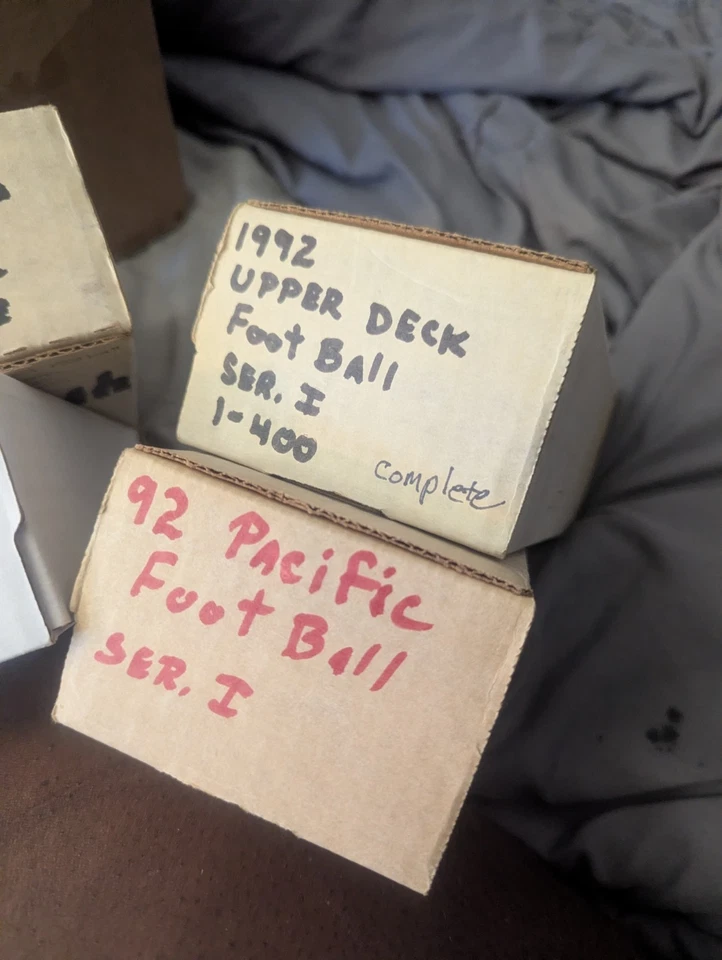 1992
UPPER DECK
FootBAll
SER. I
1-400
complete
92 PAcific
FootBAll
SER. I